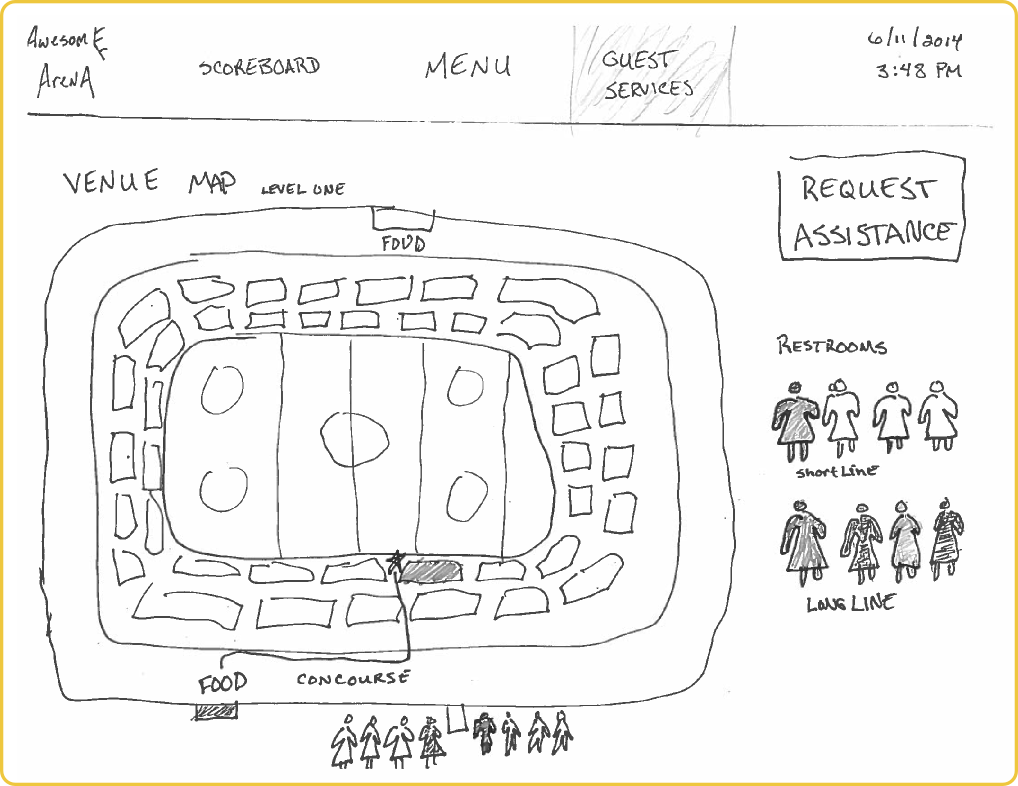 AWESOME
ARENA
SCOREBOARD
MENU
GUEST
SERVICES
6/11/2014
3:48 PM
VENUE MAP LEVEL ONE
REQUEST
ASSISTANCE
FOOD
RESTROOMS
short LINE
LONG LINE
FOOD
CONCOURSE